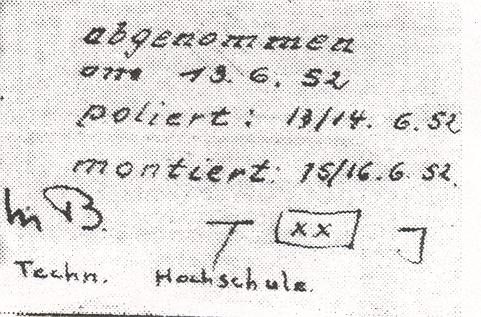 abgenommen
am 13. 6. 52
poliert: 13/14. 6. 52
montiert: 15/16. 6. 52.
B.
T xx J
Techn. Hochschule.